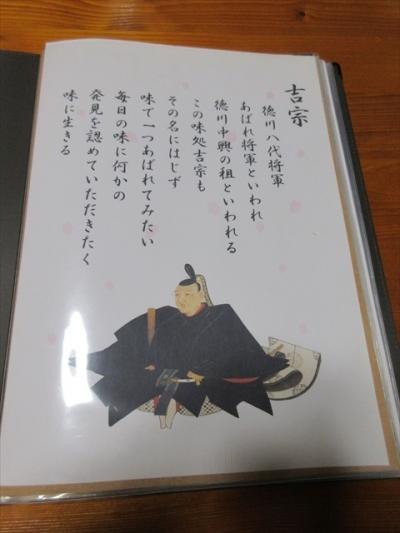 吉宗
徳川八代将軍
あばれ将軍といわれ
徳川中興の祖といわれる
この味処吉宗も
その名にはじず
味で一つあばれてみたい
毎日の味に何かの
発見を認めていただきたく
味に生きる